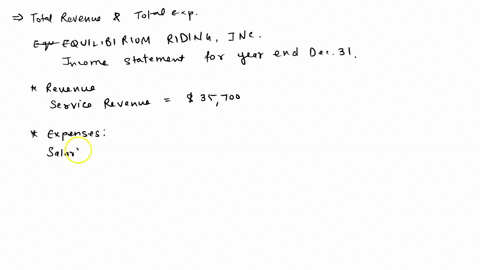 ⇒ Total Revenue & Total exp.
Equ EQUILIBIRIUM RIDING, INC.
Income statement for year end Dec. 31.
* Revenue
Service Revenue = $ 35,700
* Expenses:
Salar